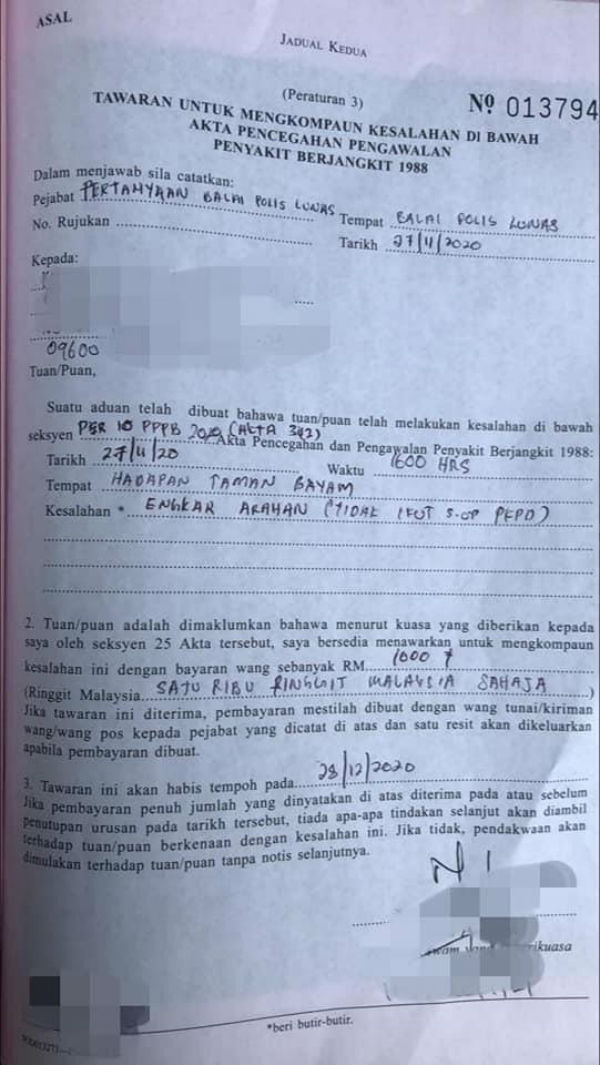 ASAL
JADUAL KEDUA
(Peraturan 3)
Nº 013794
TAWARAN UNTUK MENGKOMPAUN KESALAHAN DI BAWAH
AKTA PENCEGAHAN PENGAWALAN
PENYAKIT BERJANGKIT 1988
Dalam menjawab sila catatkan:
Pejabat PERTANYAAN BALAI POLIS LUNAS
Tempat BALAI POLIS LUNAS
No. Rujukan
Tarikh 27/11/2020
Kepada:
09600
Tuan/Puan,
Suatu aduan telah dibuat bahawa tuan/puan telah melakukan kesalahan di bawah
seksyen PER 10 PPPB 2020 (AKTA 342) Akta Pencegahan dan Pengawalan Penyakit Berjangkit 1988:
Tarikh 27/11/20 Waktu 1600 HRS
Tempat HADAPAN TAMAN BAYAM
Kesalahan * ENGKAR ARAHAN (TIDAK IKUT S.OP PKPD)
2. Tuan/puan adalah dimaklumkan bahawa menurut kuasa yang diberikan kepada
saya oleh seksyen 25 Akta tersebut, saya bersedia menawarkan untuk mengkompaun
kesalahan ini dengan bayaran wang sebanyak RM 1000
(Ringgit Malaysia SATU RIBU RINGGIT MALAYSIA SAHAJA)
Jika tawaran ini diterima, pembayaran mestilah dibuat dengan wang tunai/kiriman
wang/wang pos kepada pejabat yang dicatat di atas dan satu resit akan dikeluarkan
apabila pembayaran dibuat.
3. Tawaran ini akan habis tempoh pada 28/12/2020
Jika pembayaran penuh jumlah yang dinyatakan di atas diterima pada atau sebelum
penutupan urusan pada tarikh tersebut, tiada apa-apa tindakan selanjut akan diambil
terhadap tuan/puan berkenaan dengan kesalahan ini. Jika tidak, pendakwaan akan
dimulakan terhadap tuan/puan tanpa notis selanjutnya.
*beri butir-butir.